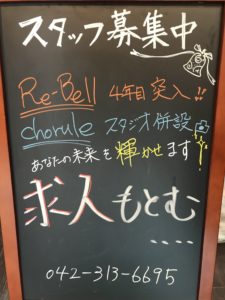 スタッフ募集中
Re-Bell 4年目突入!!
chorule スタジオ併設
あなたの未来を輝かせます!
求人もとむ
....
042-313-6695